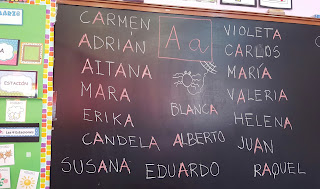 MARZO
A
ESTACIÓN
CARMEN
ADRIÁN
AITANA
MARA
ERIKA
CANDELA
SUSANA
A a
BLANCA
ALBERTO
EDUARDO
VIOLETA
CARLOS
MARÍA
VALERIA
HELENA
JUAN
RAQUEL